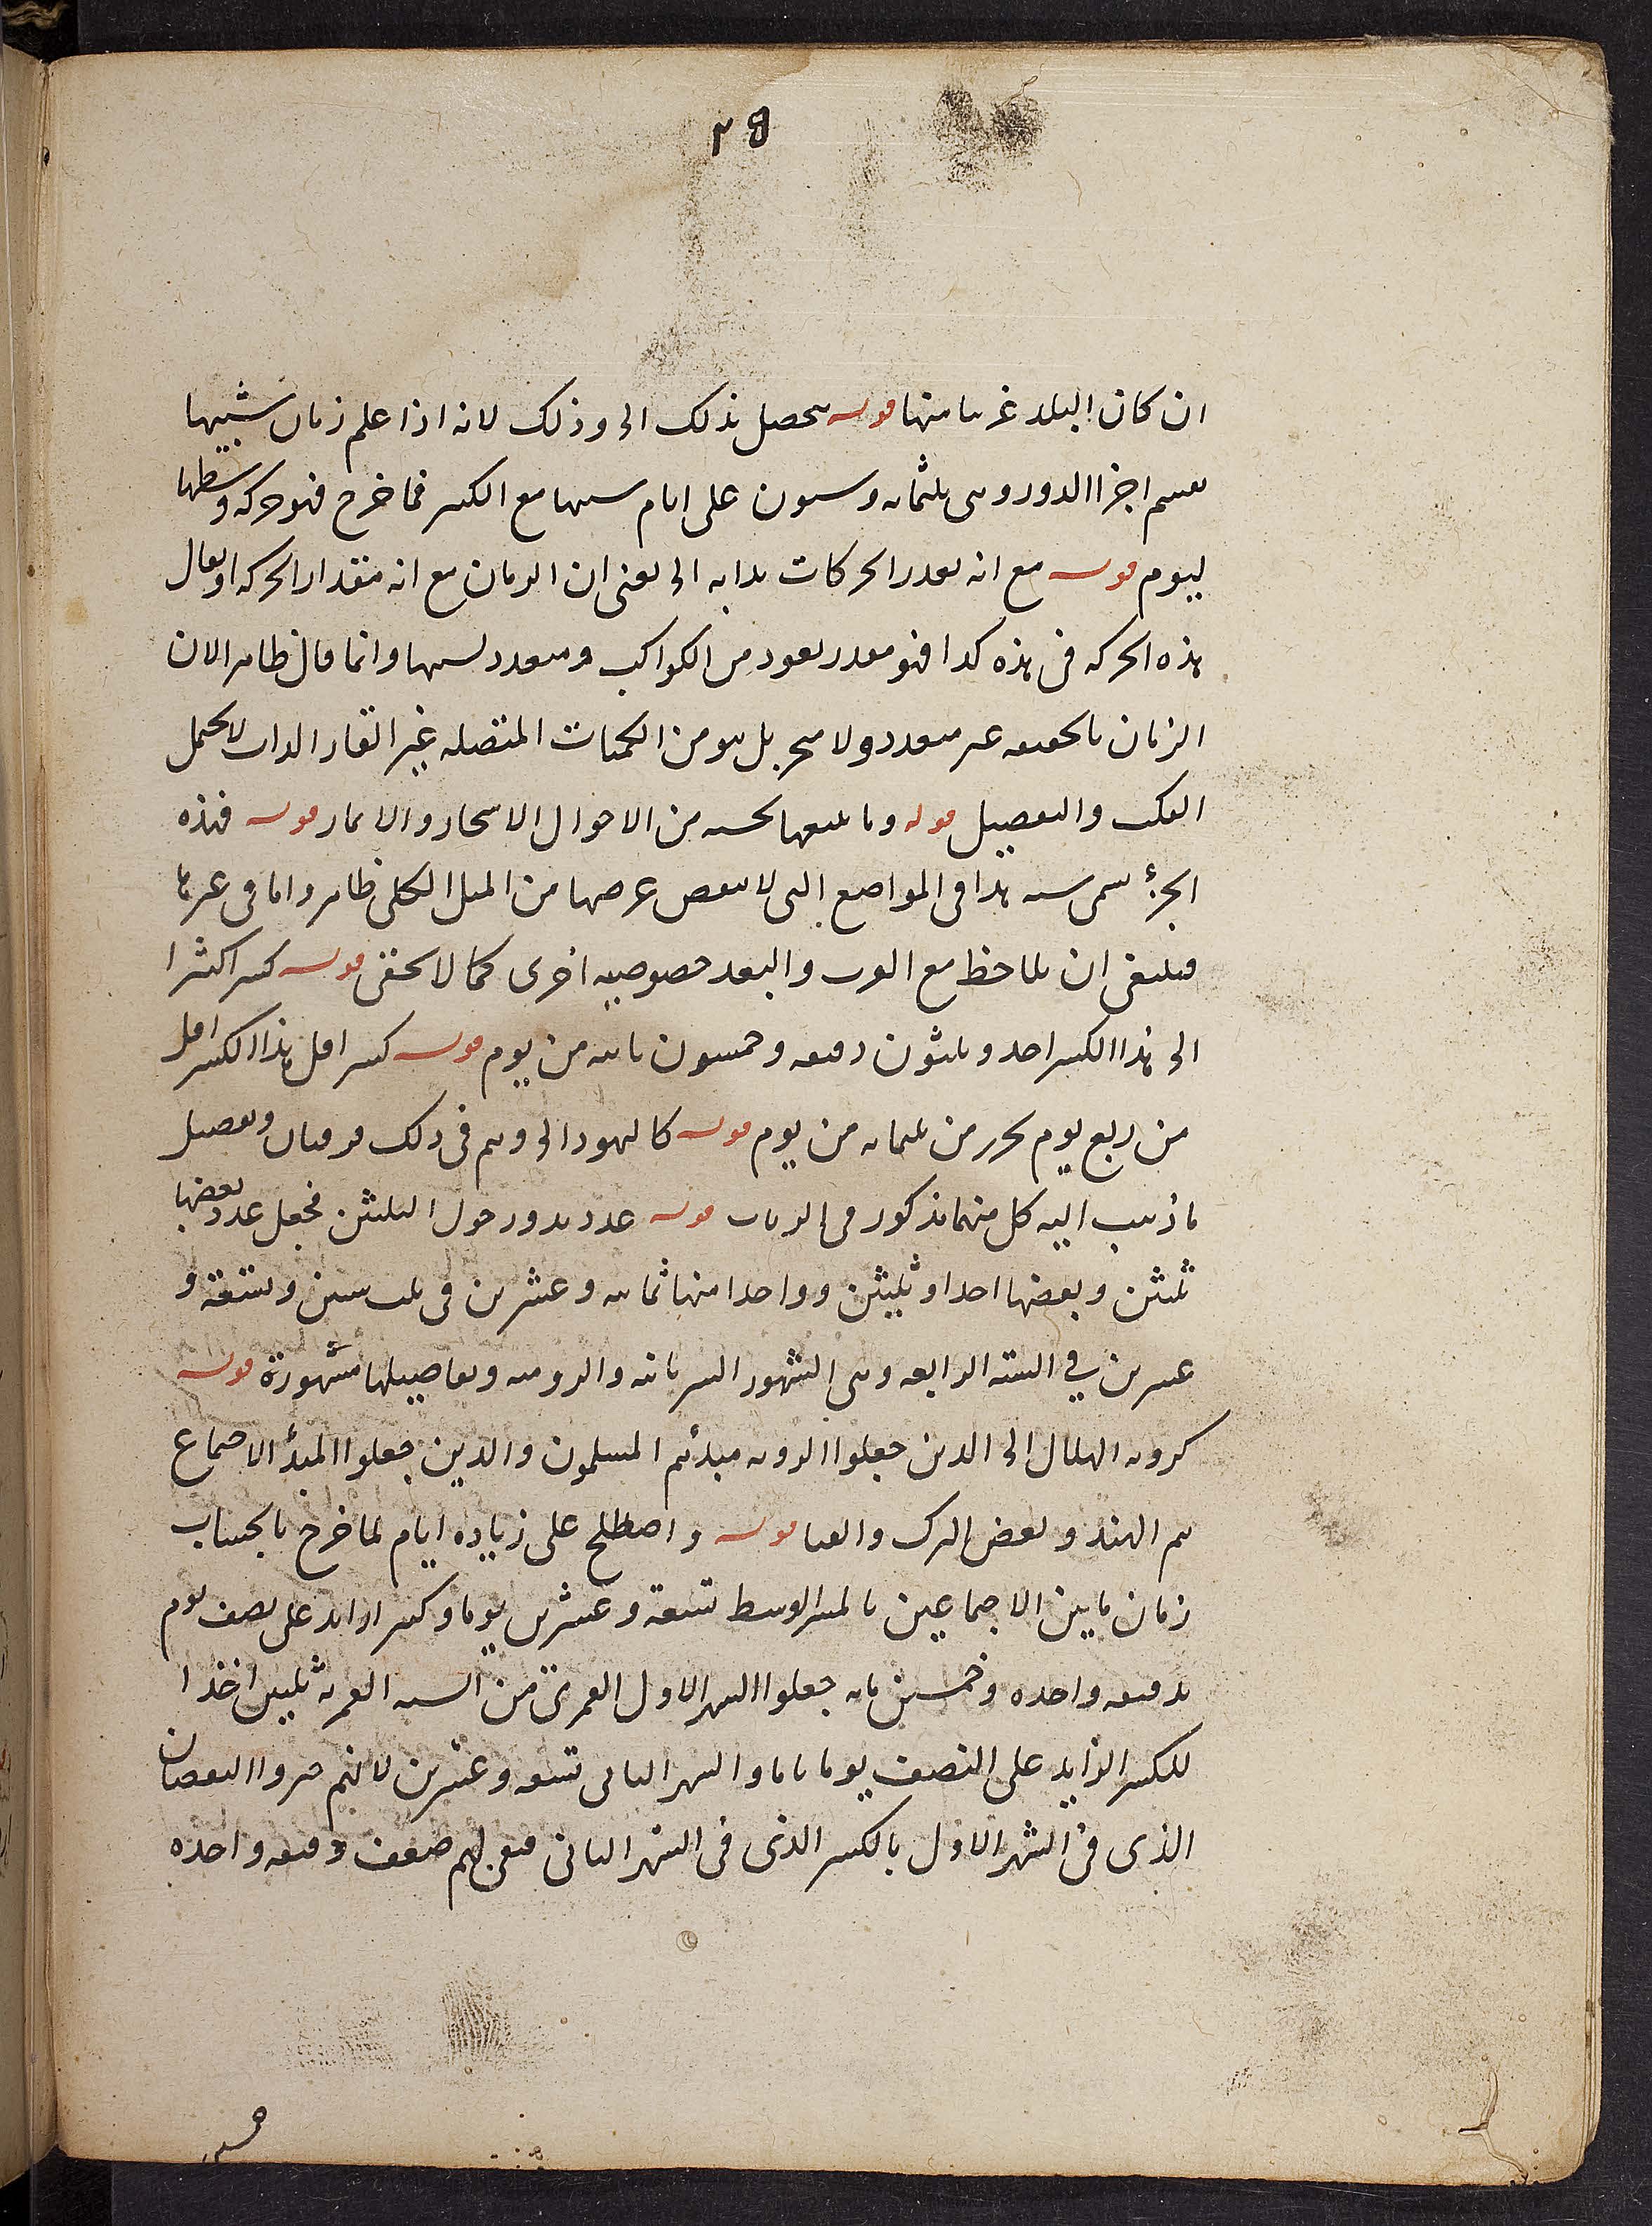 ٢٥
ان كان البلد غربيا منها قوله يحصل بذلك الى وذلك لانه اذا علم زمان سنتها
يقسم اجزا الدور وهى ثلثمائه وستون على ايام سنتها مع الكسر فما خرج فهو حركه وسطها
ليوم قوله مع انه يقدر الحركات بدايه الى يعنى ان الزمان مع انه مقدار الحركه او يقال
هذه الحركه فى هذه كذا فهو مقدر بعود من الكواكب ومتعدد بسببها وانما قال ظاهر الان
الزمان بالحقيقه غير متعدد ولا متجز بل هو من الكميات المتصله غير القار الذات لا يحتمل
الفك والتفصيل قوله وما يتبعها بحسبه من الاحوال الاسحار والاثمار قوله فهذه
الجزء سمى سنه هذا فى المواضع التى لا ينقص عرضها من الميل الكلى ظاهر واما فى غيرها
فينبغى ان يلاحظ مع القرب والبعد خصوصيه اخرى كما لا يخفى قوله كسر اكثر ا
الى هذا الكسر احد وثلثون دقيقه وخمسون ثانيه من يوم قوله كسر اقل هذا الكسر اقل
من ربع يوم بجزء من ثلثمائه من يوم قوله كاليهود الى وهم فى ذلك فرقتان وتفصيل
ما ذهب اليه كل منهما مذكور فى الزيجات قوله عدد يدور حول الثلثين فجعل عدد بعضها
ثلثين وبعضها احدا وثلثين وواحدا منها ثمانيه وعشرين فى ثلث سنين وتسعة و
عشرين في السنه الرابعه وهى الشهور السريانيه والروميه وتفاصيلها مشهورة قوله
كرويه الهلال الى الذين جعلوا الرويه مبدئهم المسلمون والذين جعلوا المبدأ الاجتماع
هم الهند وبعض الترك والقتا قوله واصطلح على زياده ايام لما خرج بالحساب
زمان ما بين الاجتماعين بالمسير الوسط تسعة وعشرين يوما وكسرا زايد على نصف يوم
بدقيقه واحده وخمسين ثانيه جعلوا الشهر الاول القمرى من السنه القمريه ثلثين اخذا
للكسر الزايد على النصف يوما تاما والشهر الثانى تسعه وعشرين لانهم جبروا النقصان
الذى فى الشهر الاول بالكسر الذى فى الشهر الثانى فبقى لهم ضعف دقيقه واحده